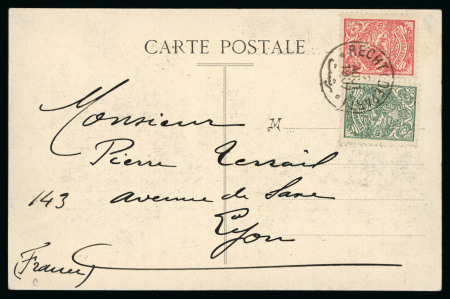 CARTE POSTALE
RECHT
Monsieur
M
Pierre Terrail
143 avenue de Saxe
Lyon
(France)